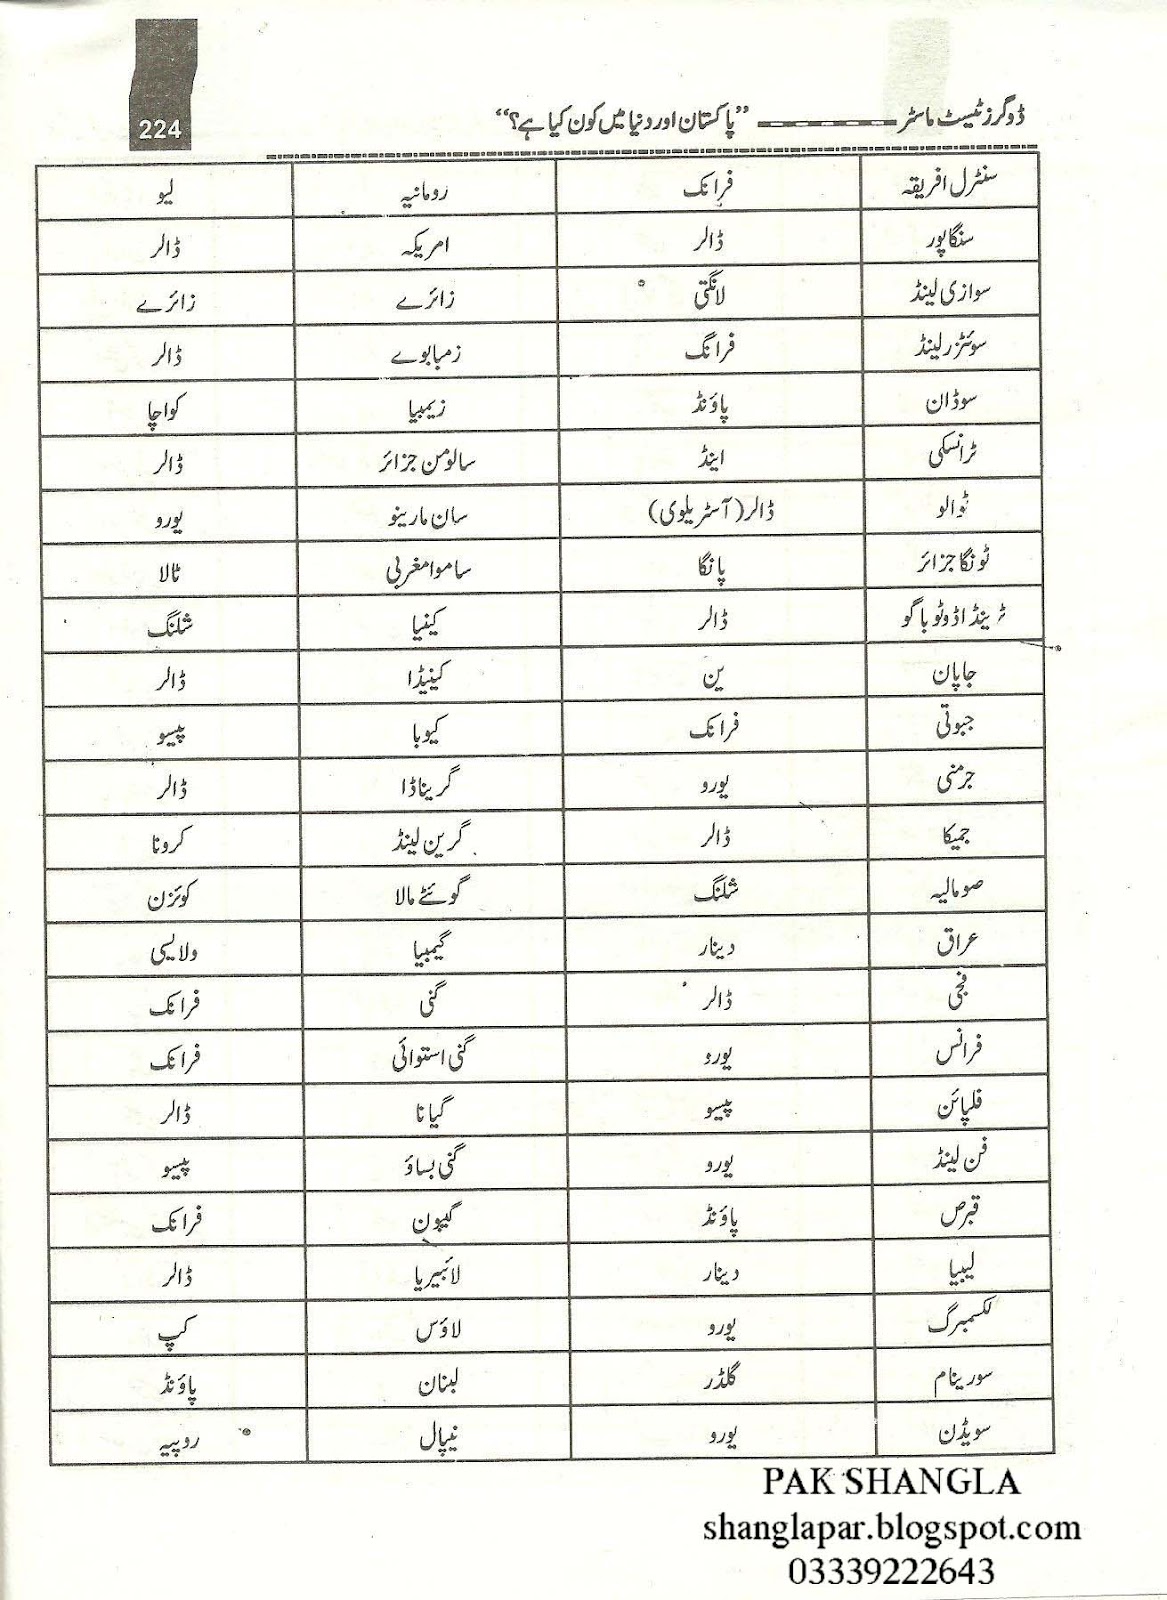 ڈوگرز ٹیسٹ ماسٹر "پاکستان اور دنیا میں کون کیا ہے؟" 224
سنٹرل افریقہ فرانک رومانیہ لیو
سنگاپور ڈالر امریکہ ڈالر
سوازی لینڈ لانگنی زائرے زائرے
سوئٹزرلینڈ فرانگ زمبابوے ڈالر
سوڈان پاؤنڈ زیمبیا کواچا
ٹرانسکی اینڈ سالومن جزائر ڈالر
ٹوالو ڈالر (آسٹریلوی) سان مارینو یورو
ٹونگا جزائر پانگا ساموا مغربی ٹالا
ٹرینڈاڈوٹوباگو ڈالر کینیا شلنگ
جاپان ین کینیڈا ڈالر
جبوتی فرانک کیوبا پیسو
جرمنی یورو گریناڈا ڈالر
جمیکا ڈالر گرین لینڈ کرونا
صومالیہ شلنگ گوئٹے مالا کوئزن
عراق دینار گیمبیا ولایسی
فجی ڈالر گنی فرانک
فرانس یورو گنی استوائی فرانک
فلپائن پیسو گیانا ڈالر
فن لینڈ یورو گنی بساؤ پیسو
قبرص پاؤنڈ گیبون فرانک
لیبیا دینار لائبیریا ڈالر
لکسمبرگ یورو لاؤس کپ
سورینام گلڈر لبنان پاؤنڈ
سویڈن یورو نیپال روپیہ
PAK SHANGLA
shanglapar.blogspot.com
03339222643